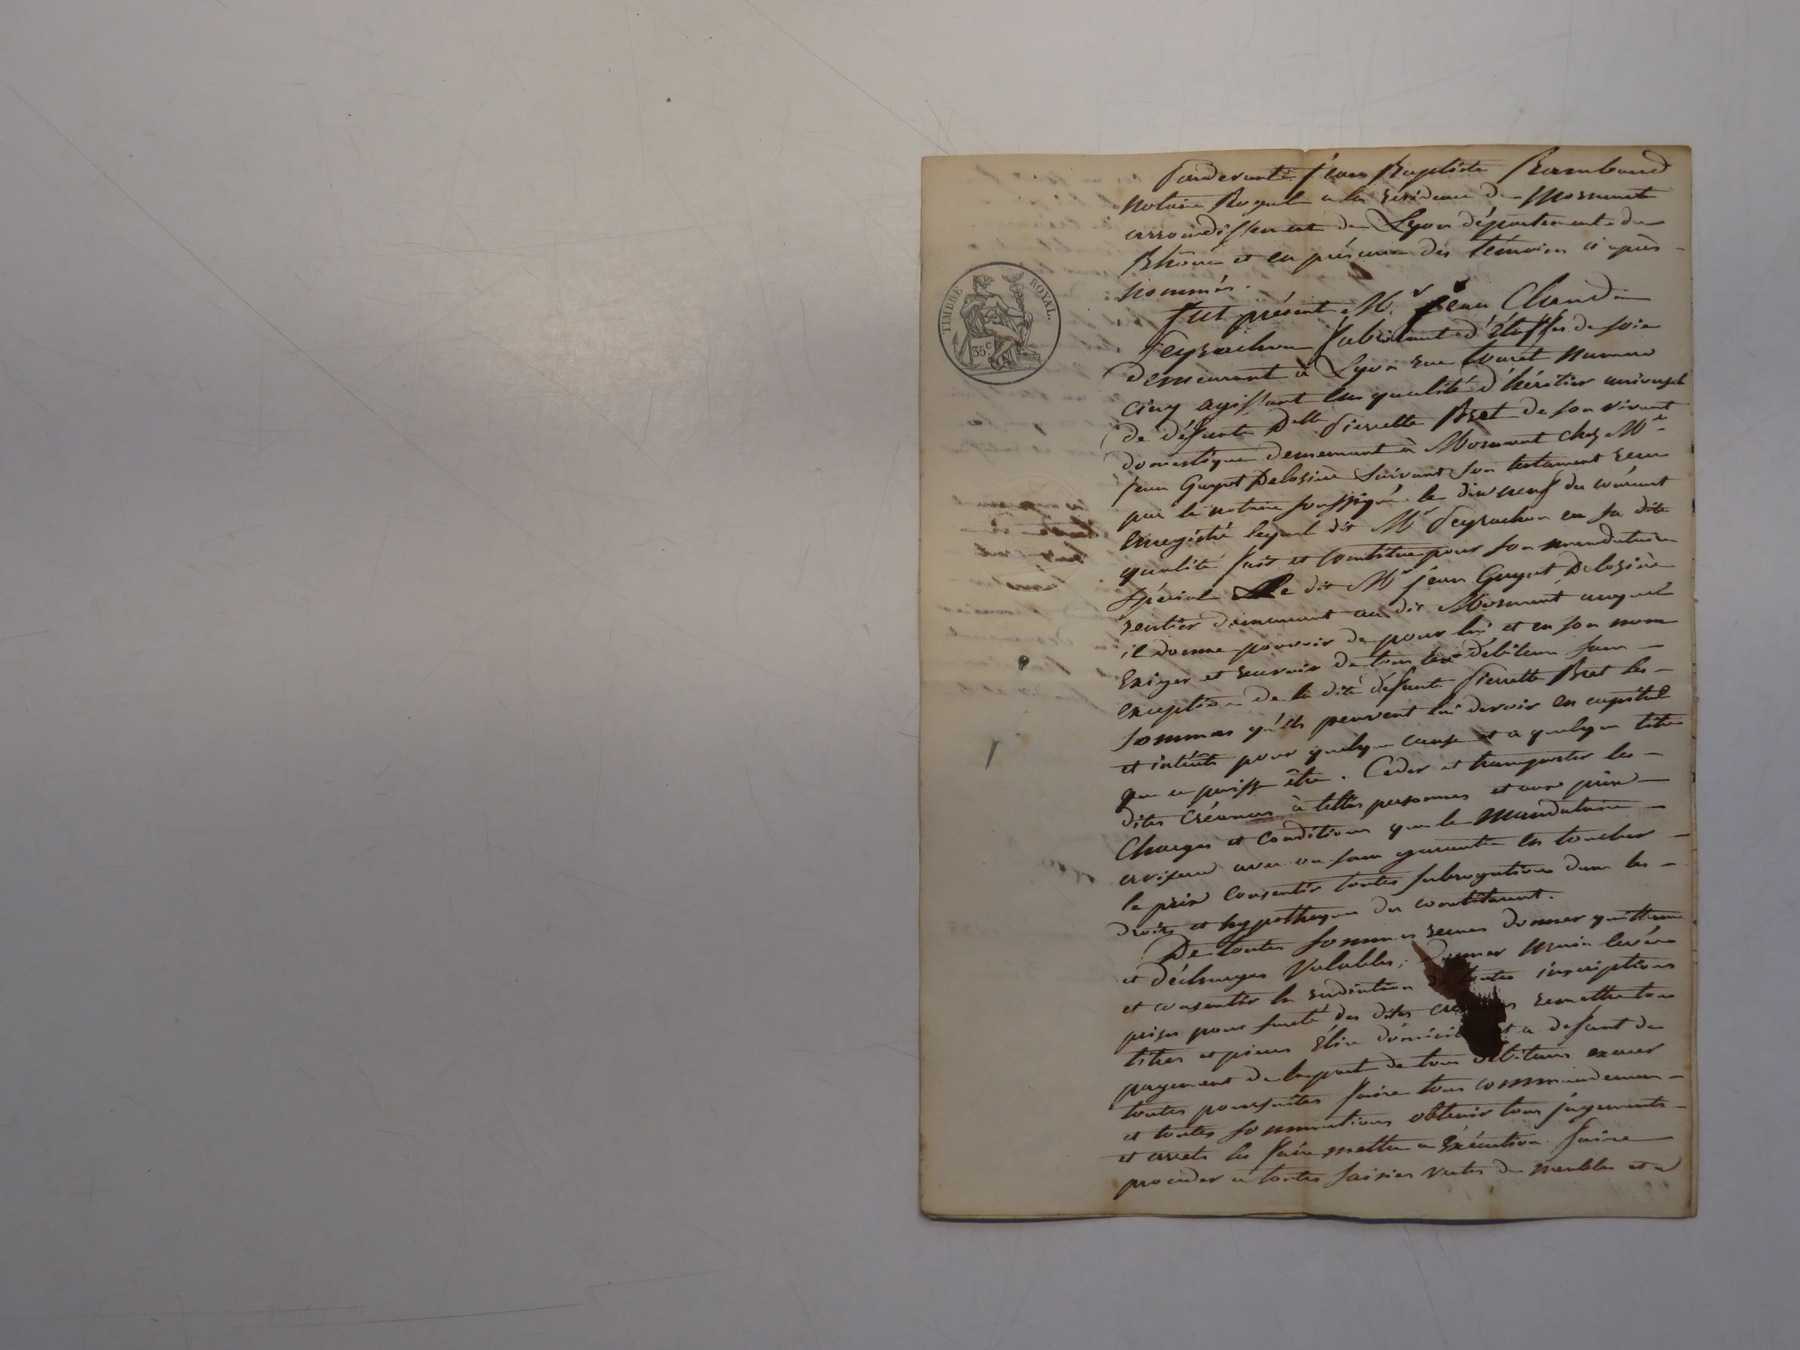 TIMBRE ROYAL.
35c
Pardevant Jean Baptiste Rambaud
Notaire Royal a la résidence de Mornant
arrondissement de Lyon département du
Rhône et en présence des témoins ci après
nommés.
Fut présent Mr. Jean Claude
Peyrachon fabricant d'étoffes de soie
demeurant à Lyon rue numero
cinq agissant en qualité d'héritier universel
de défunte Delle Pierrette Bret de son vivant
domestique demeurant à Mornant chez Mr.
jean Guyot Delosière suivant son testament reçu
par le notaire soussigné le dix neuf du courant
enregistré lequel dit Mr Peyrachon en sa dite
qualité fait et constitue pour son mandataire
spécial le dit Mr jean Guyot Delosière
rentier demeurant au dit Mornant auquel
il donne pouvoir de pour lui et en son nom
Exiger et recevoir de tous les débiteurs sans
exception de la dite défunte Pierrette Bret les
sommes qu'ils peuvent lui devoir en capital
et intérêts pour quelque cause et a quelque titre
que ce puisse être. Ceder et transporter les
dites Créances à telles personnes et aux prix
Charges et Conditions que le Mandataire
avisera avec ou sans garantie en toucher
le prix Consentir toutes subrogations dans les
droits et hypothèques du constituant.
De toutes sommes reçues donner quittance
et décharges Valables, Donner Main levée
et consentir la radiation de toutes inscriptions
prises pour sureté des dites créances remettre tous
titres et pieces Elire domicile et a defaut de
payement de la part de tous débiteurs exercer
toutes poursuites faire tous commandemens
et toutes sommations obtenir tous jugements
et arrets les faire mettre a Exécution faire
proceder a toutes saisies ventes de meubles et a